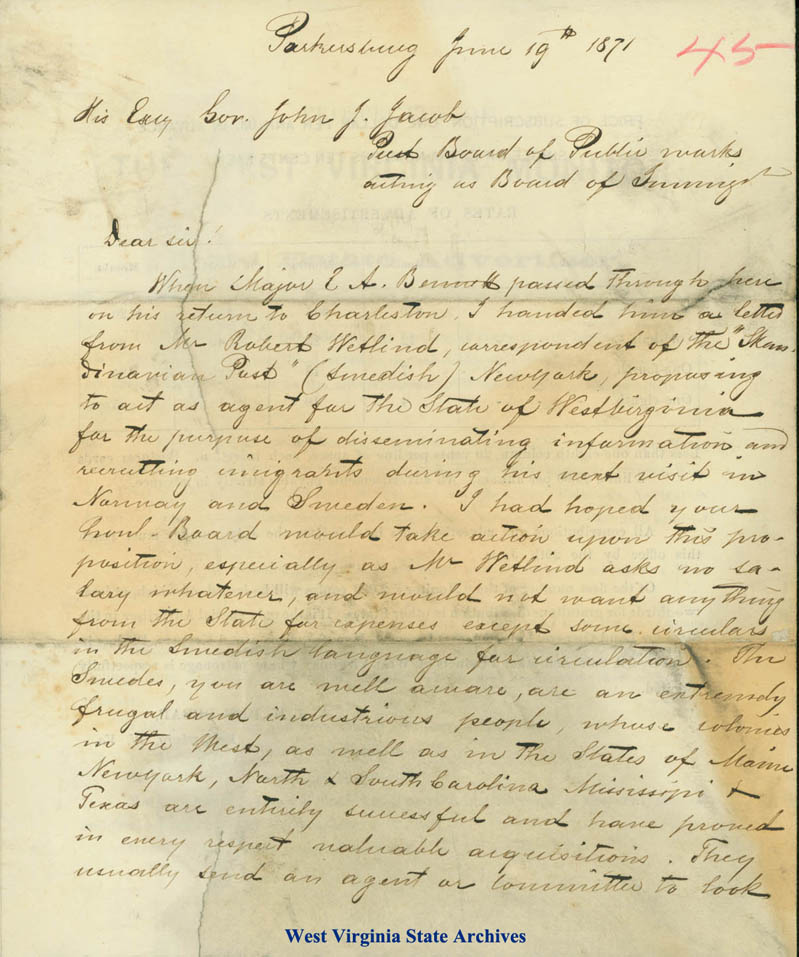 Parkersburg June 19th 1871
45
His Excy Gov. John J. Jacob
Prest Board of Public works
acting as Board of Immigrt
Dear sir!
When Major E A. Bennett passed through here
on his return to Charleston, I handed him a letter
from Mr Robert Wetlind, correspondent of the "Skan-
dinavian Post" (Swedish) Newyork, proposing
to act as agent for the State of Westvirginia
for the purpose of disseminating information and
recruiting imigrants during his next visit in
Norway and Sweden. I had hoped your
honl. Board would take action upon this pro-
position, especially as Mr Wetlind asks no sa-
lary whatever, and would not want anything
from the State for expenses except some circulars
in the Swedish language for circulation. The
Swedes, you are well aware, are an extremely
frugal and industrious people, whose colonies
in the West, as well as in the States of Maine
Newyork, North & South Carolina Mississippi &
Texas are entirely successful and have proved
in every respect valuable acquisitions. They
usually send an agent or committee to look
West Virginia State Archives